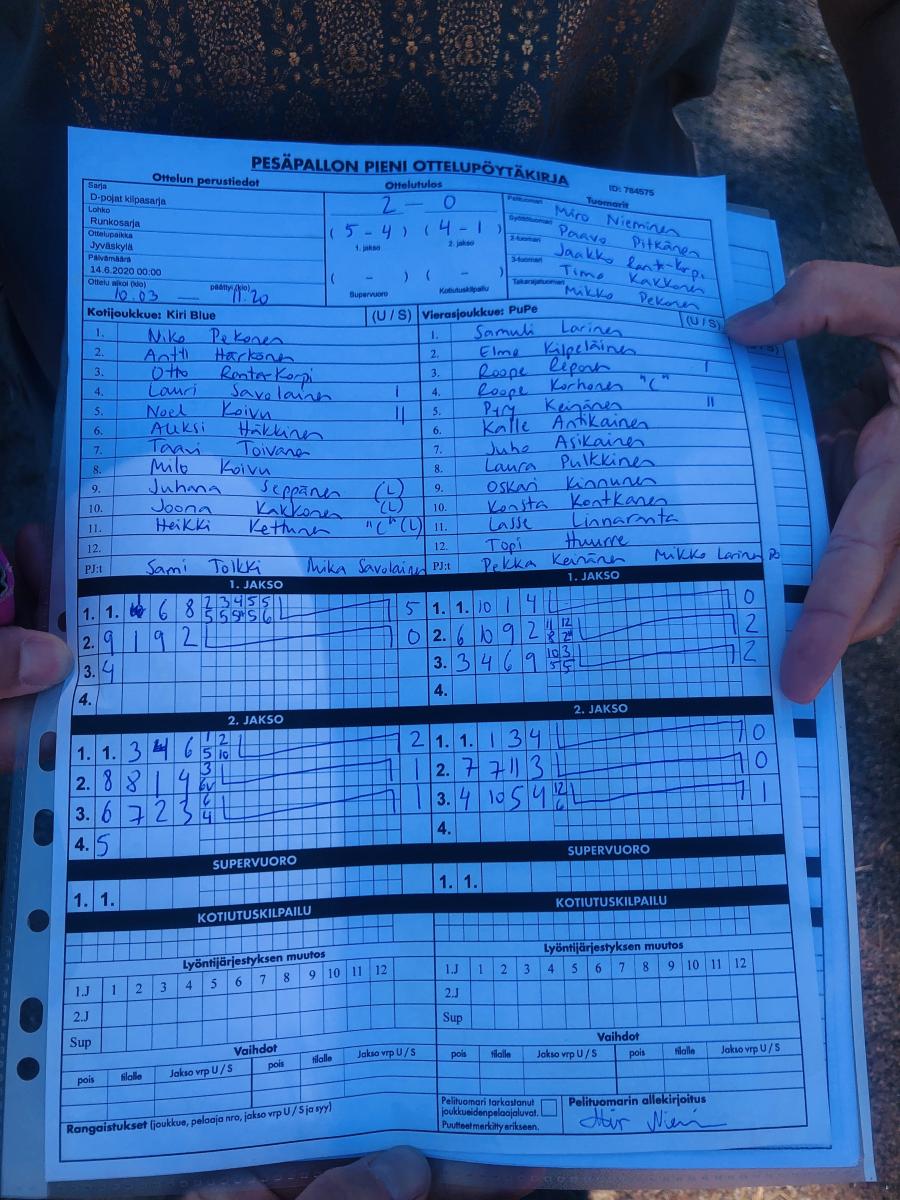 PESÄPALLON PIENI OTTELUPÖYTÄKIRJA
ID: 784575
Ottelun perustiedot
Sarja
D-pojat kilpasarja
Lohko
Runkosarja
Ottelupaikka
Jyväskylä
Päivämäärä
14.6.2020 00:00
Ottelu alkoi (klo) päättyi (klo)
10.03 — 11.20
Ottelutulos
2 — 0
(5 - 4) (4 - 1)
1. jakso 2. jakso
( - ) ( - )
Supervuoro Kotiutuskilpailu
Tuomarit
Pelituomari Miro Nieminen
Syöttötuomari Paavo Pitkänen
2-tuomari Jaakko
3-tuomari Timo Kakkonen
Takarajatuomari Mikko Pekonen
Kotijoukkue: Kiri Blue (U / S)
1. Niko Pekonen
2. Antti Härkönen
3. Otto Ranta-Korpi
4. Lauri Savolainen I
5. Noel Koivu II
6. Aleksi Häkkinen
7. Taavi Toivanen
8. Milo Koivu
9. Juhana Seppänen (L)
10. Joona Kakkonen (L)
11. Heikki Kettunen "C" (L)
12.
PJ:t Sami Tolkki Mika Savolainen
Vierasjoukkue: PuPe (U / S)
1. Samuli Larinen
2. Elmo Kilpeläinen
3. Roope Reponen I
4. Roope Korhonen "C"
5. Pyry Keinänen II
6. Kalle Antikainen
7. Juho Asikainen
8. Laura Pulkkinen
9. Oskari Kinnunen
10. Konsta Kontkanen
11. Lasse Linnaranta
12. Topi Huurre
PJ:t Pekka Keinänen Mikko Larinen
1. JAKSO
1. 1. 6 8 2 3 4 5 5 5
5 5 5 5 6
2. 9 1 9 2 0
3. 4
4.
1. JAKSO
1. 1. 10 1 4 0
2. 6 10 9 2 11 12 2
8 2
3. 3 4 6 9 10 3 2
5 5
4.
2. JAKSO
1. 1. 3 6 1 2 2
5 10
2. 8 8 1 4 3 1
6v
3. 6 7 2 3 6 1
4
4. 5
2. JAKSO
1. 1. 1 3 4 0
2. 7 7 11 3 0
3. 4 10 5 4 12 1
6
4.
SUPERVUORO
1. 1.
SUPERVUORO
1. 1.
KOTIUTUSKILPAILU
KOTIUTUSKILPAILU
Lyöntijärjestyksen muutos
1.J 1 2 3 4 5 6 7 8 9 10 11 12
2.J
Sup
Lyöntijärjestyksen muutos
1.J 1 2 3 4 5 6 7 8 9 10 11 12
2.J
Sup
Vaihdot
pois tilalle Jakso vrp U / S pois tilalle Jakso vrp U / S
Vaihdot
pois tilalle Jakso vrp U / S pois tilalle Jakso vrp U / S
Rangaistukset (joukkue, pelaaja nro, jakso vrp U / S ja syy)
Pelituomari tarkastanut
joukkueidenpelaajaluvat.
Puutteet merkitty erikseen.
Pelituomarin allekirjoitus